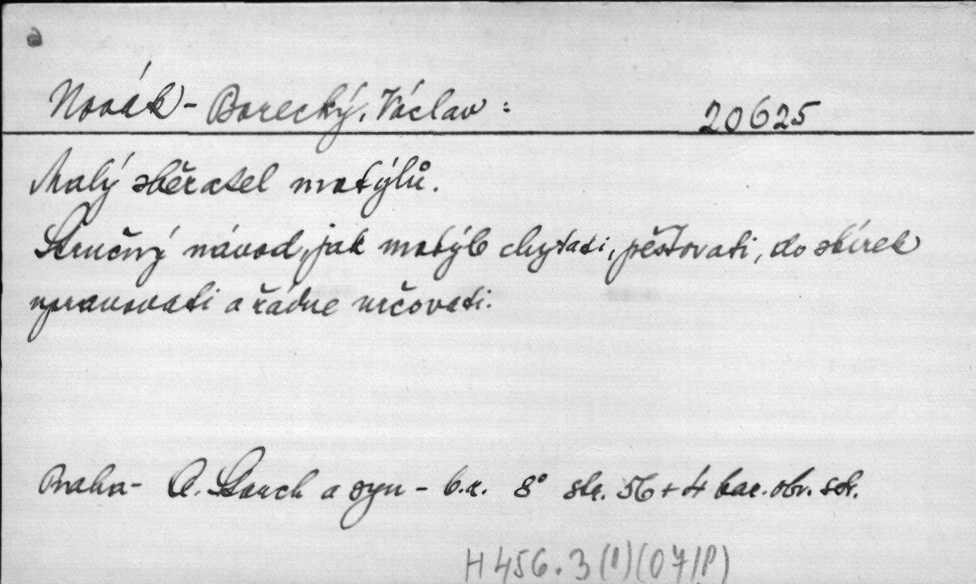 Novák - Borecký, Václav : 20625
Malý sběratel motýlů.
Stručný návod, jak motýly chytati, pěstovati, do sbírek
upravovati a řádně určovati.
Praha - A. Storch a syn - b.r. 8° str. 56 + 4 bar. obr.
H 456.3 (1) (07/P)